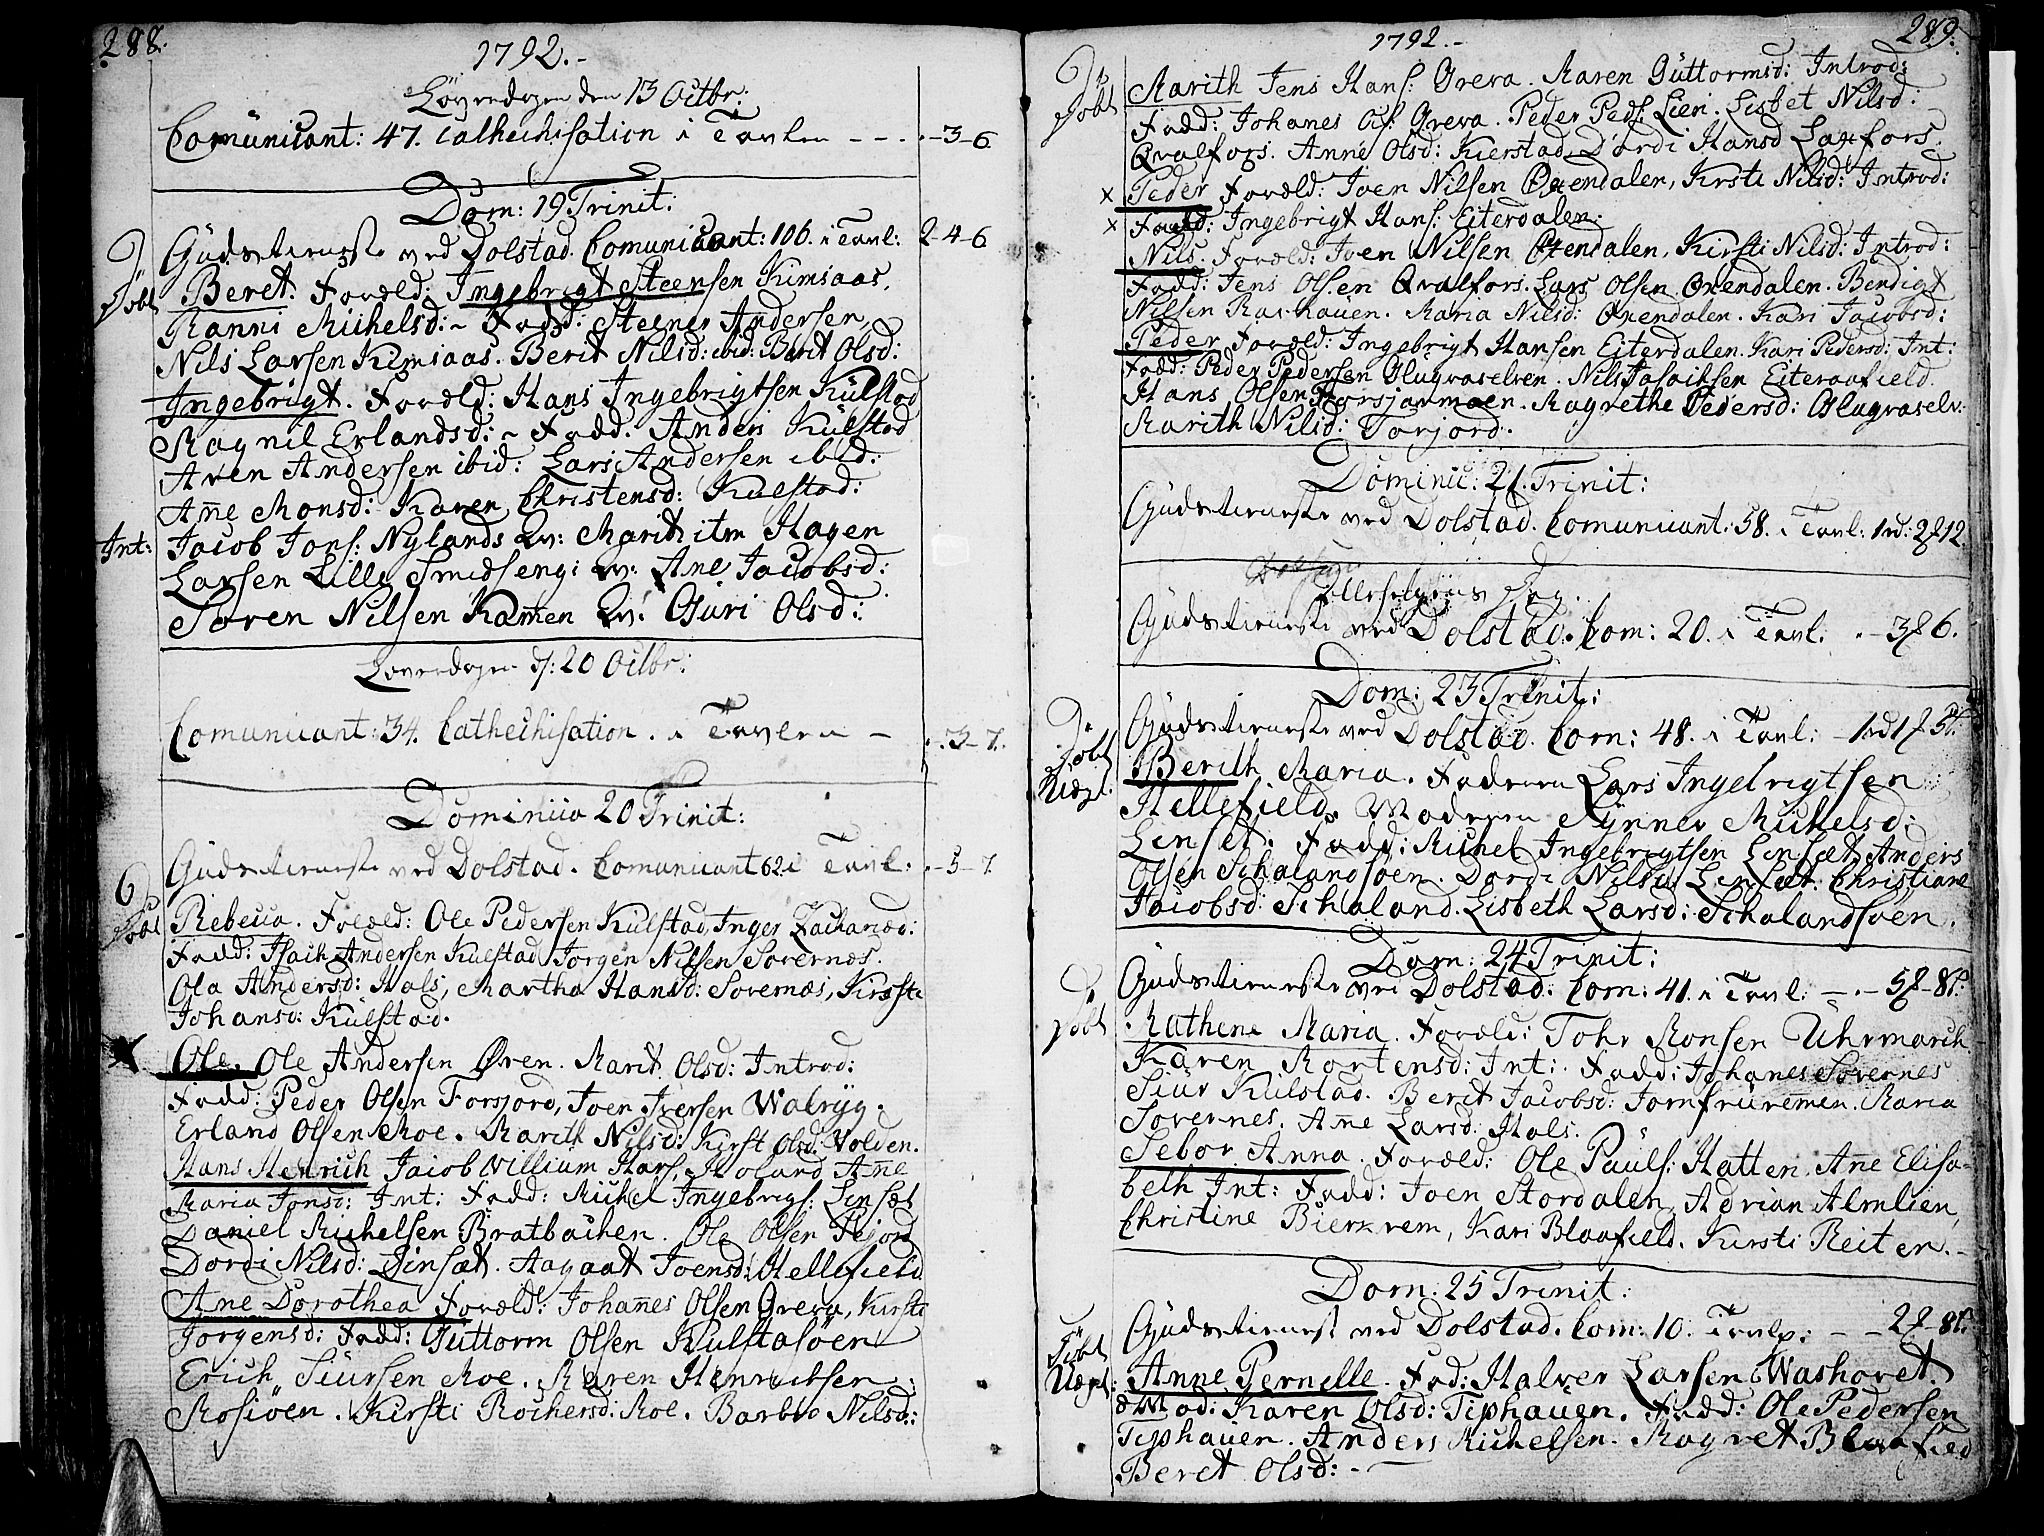 288.
1792.-
Løverdagen den 13 Octbr:
Comunicant: 47. Cathechisation i Tavlen - - - . -3-6
Dom: 19 Trinit:
Gudstieneste ved Dolstad. Comunicant: 106. i Tavl: 2-4-6
Døbt
Beret. Foræld: Ingebrigt Steensen Kimsaas,
Ranni Michelsd:~ Fadd: Steener Andersen,
Nils Larsen Kimsaas. Berit Nilsd: ibid: Berit Olsd:
Ingebrigt. Foræld: Hans Ingebrigtsen Kulstad
Ragnil Erlandsd: ~ Fadd. Anders Kulstad
Aven Andersen ibid: Lars Andersen ibid:
Añe Monsd: Karen Christensd: Kulstad:
Int: Jacob Jons: Nylands Qv: Marith itm Hagen
Larsen Lille Smedseng: Qv: Ane Jacobsd:
Søren Nilsen Ramen Qv: Guri Olsd:
Løverdagen d: 20 Octbr:
Comunicant: 34. Cathechisation. i Tavlen - . .3-7.
Dominica 20 Trinit:
Gudstieneste ved Dolstad. Comunicant 62 i Tavl: .-5-7.
Døbt
Rebecca. Foræld: Ole Pedersen Kulstad, Inger Zachariæd:
Fadd: Isach Andersen Kulstad Jørgen Nilsen Søvernæs.
Ola Andersd: Hals, Martha Hansd: Søvernæs, Kirste
Johansd: Kulstad.
Ole. Ole Andersen Øren. Marit Olsd: Introd:
Fadd: Peder Olsen Forsjord, Joen Iversen Walryg.
Erland Olsen Moe. Marith Nilsd: Kirst Olsd: Volden.
Hans Henrich Jacob Villium Hars, Holand Añe
Maria Jonsd: Int: Fadd: Michel Ingebrigs: Linsæt
Daniel Michelsen Bratbachen. Ole Olsen
Dordi Nilsd: Linsæt. Aagaat Joensd: Hellefield
Ane Dorothea Foræld: Johañes Olsen Greva, Kirste
Jørgensd: Fadd: Guttorm Olsen Kulstasöen
Erich Siursen Moe. Maren Henrichsen
Mosiøen. Kirsti Rochersd: Moe. Barbro Nilsd:
1792.-
289.
Døbt
Marith Jens Hans: Greva. Maren Guttormsd: Introd:
Fadd: Johanes Ols: Greva. Peder Peds: Lien. Lisbet Nilsd:
Qvalfors. Anne Olsd: Kierstad, Dordi Hansd Laxfors.
x Peder Foræld: Joen Nilsen Øxendalen, Kirste Nilsd: Introd:
x Fadd: Ingebrigt Hans: Eiterdalen.
Nils. Foræld: Joen Nilsen Øxendalen, Kirsti Nilsd: Introd:
Fadd: Jens Olsen Qvalfors. Lars Olsen Øxendalen. Bendigt
Nilsen Rachauen. Maria Nilsd: Øxendalen. Kari Jacobsd:
Peder Foræld: Ingebrigt Hansen Eiterdalen. Kari Pedersd: Int:
Fadd: Peder Pedersen Glugvaselven. Nils Eiteraafield.
Hans Olsen Forsjanmoen. Magrethe Pedersd: Glugvaselv:
Marith Nilsd: Forjord.
Dominic: 21. Trinit:
Gudstieneste ved Dolstad. Comunicant: 58. i Tavl: 1rd: 2ß12.
Allehelgens Dag.
Gudstieneste ved Dolstad. Com: 20. i Tavl: .-3ß6.
Dom: 23 Trinit:
Gudstieneste ved Dolstad. Com: 48. i Tavl: -1rd1ß5
Døbt
Uægt.
Berith Maria. Faderen Lars Ingebrigtsen
Hellefield. Moderen Rynner Michelsd:
Linset: Fadd: Michel Ingebrigtsen Linsæt, Anders
Olsen Schalandsøen. Dordi Nilsd: Linsæt. Christiane
Jacobsd: Schaland. Lisbeth Larsd: Schalandsøen.
Dom: 24 Trinit:
Gudstieneste ved Dolstad. Com: 41. i Tavl: -.-5ß-8
Døbt
Kathene Maria. Foræld: Tohr Monsen Uhrmarch
Karen Mortensd: Int: Fadd: Johanes Søvernes
Siur Kulstad. Berit Jacobsd: Jomfruremen. Maria
Søvernes. Añe Larsd: Hals.
Sebor Anna. Foræld: Ole Pauls: Hatten. Ane Elisa-
beth Int: Fadd: Joen Stordalen, Adrian Almlien,
Christine Bierkrem, Kari Blaafield. Kirsti Reiten.-
Dom: 25 Trinit:
Gudstienest ved Dolstad. Com: 10. Tavl: - - 2ß-8
Døbt
Uægt:
Anne Pernelle. Fad: Halver Larsen Washovet.
Mod: Karen Olsd: Tiphauen. Fadd: Ole Pedersen
Tiphauen. Anders Michelsen. Magret Blaafield
Beret Olsd: -